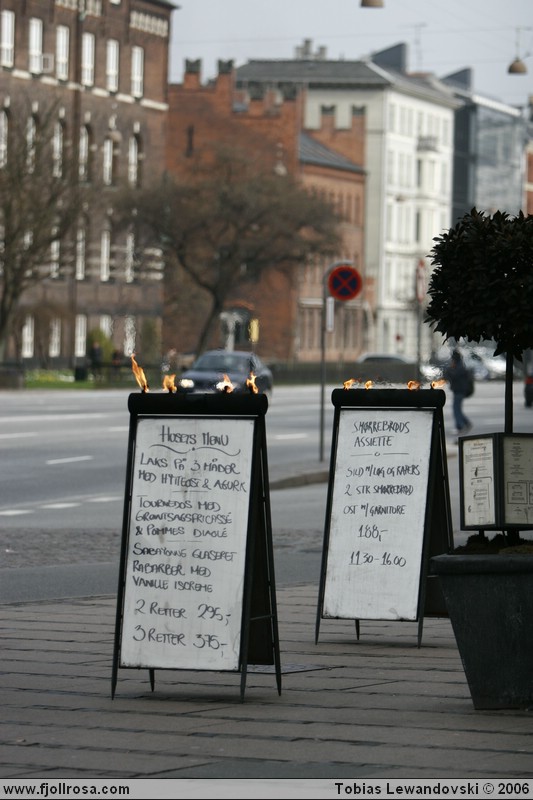 HUSETS MENU
LAKS PÅ 3 MÅDER
MED HYTTEOST & AGURK
TOURNEDOS MED
GRØNTSAGSFRICASSÉ
& POMMES
SABAYONNE GLASERET
RABARBER MED
VANILLE ISCREME
2 RETTER 295,-
3 RETTER 375,-
SMØRREBRØDS
ASSIETTE
SILD M/LØG OG KAPERS
2 STK SMØRREBRØD
OST M/GARNITURE
188,-
11.30-16.00
www.fjollrosa.com
Tobias Lewandovski © 2006